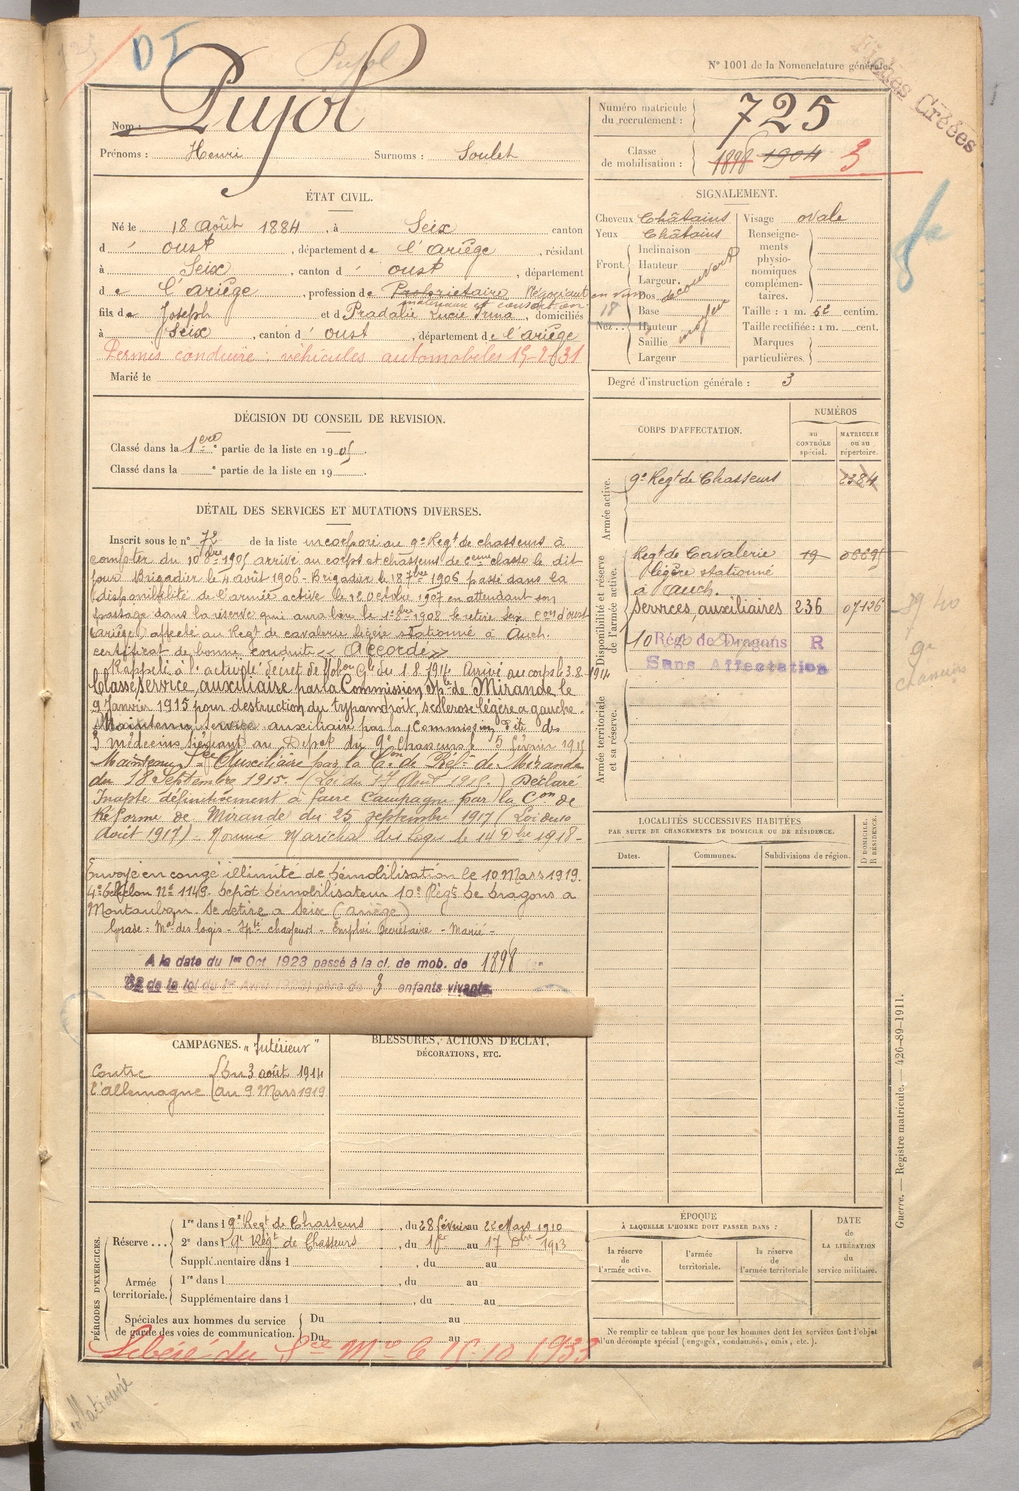 DI
Pujol
N° 1001 de la Nomenclature générale.
Fiches Créées
Nom : Pujol
Prénoms : Henri Surnoms : Soulet
Numéro matricule du recrutement : 725
Classe de mobilisation : 1898 1904 3
ÉTAT CIVIL.
Né le 18 Août 1884, à Seix canton
d' Oust, département de l'Ariège, résidant
à Seix, canton d' Oust, département
de l'Ariège, profession de Propriétaire Négociant en vins
matériaux de construction
fils de Joseph et de Pradalié Lucie Irma, domiciliés
à Seix, canton d' Oust, département de l'Ariège
Permis conduire : véhicules automobiles 15-2-31
Marié le
SIGNALEMENT.
Cheveux Châtains
Yeux Châtains
Front Inclinaison
Hauteur
Largeur découvert
Nez Dos
Base
Hauteur moyen
Saillie
Largeur
18
Visage ovale
Renseignements physionomiques complémentaires.
Taille : 1 m. 58 centim.
Taille rectifiée : 1 m. cent.
Marques particulières.
Degré d'instruction générale : 3
DÉCISION DU CONSEIL DE REVISION.
Classé dans la 1ère partie de la liste en 1905.
Classé dans la e partie de la liste en 19 .
DÉTAIL DES SERVICES ET MUTATIONS DIVERSES.
Inscrit sous le n° 72 de la liste incorporé au 9e Regt de chasseurs à
compter du 10 8bre 1905 arrivé au corps et chasseur de 2eme classe le dit
jour Brigadier le 4 août 1906 - Brigadier le 18 7bre 1906 passé dans la
disponibilité de l'armée active le 12 Octobre 1907 en attendant son
passage dans la réserve qui aura lieu le 1er 8bre 1908 se retire Seix Con d'oust
(Ariège) affecté au Regt de cavalerie légère stationné à Auch.
certificat de bonne conduite « Accordé »
Rappelé à l'activité décret de Mobon Gle du 1.8.1914 Arrivé au corps le 3.8.1914
Classé Service auxiliaire par la Commission Sple de Mirande le
9 Janvier 1915 pour destruction du tympan droit, sclérose légère a gauche.
Maintenu service auxiliaire par la Commission des
3 médecins siégeant au Dépôt du 9e Chasseurs le 5 février 1915
Maintenu Sce Auxiliaire par la Con de Réf. de Mirande
du 18 Septembre 1915. (Loi du 17 Août 1915.) Déclaré
Inapte définitivement à faire Campagne par la Con de
Réforme de Mirande du 25 septembre 1917 (Loi du
Août 1917) - Nommé Maréchal des logis le 14 Dbre 1918 -
Envoyé en congé illimité de démobilisation le 10 Mars 1919.
4e échelon N° 1149. Dépôt démobilisateur 10e Régt de dragons à
Montauban. Se retire à Seix (Ariège)
Grade : Mal des logis - Splé chasseurs - Emploi Secrétaire - Marié -
A la date du 1er Oct 1923 passé à la cl. de mob. de 1898
de la loi du 1er Avril 1923) père de 3 enfants vivants.
CORPS D'AFFECTATION.
NUMÉROS
au CONTRÔLE spécial.
MATRICULE ou au répertoire.
Armée active.
9e Regt de Chasseurs 2384
Disponibilité et réserve de l'armée active.
Regt de Cavalerie légère stationné à Auch. 19 06695
Services auxiliaires 236 07126
10e Régt de Dragons R
Sans Affectation
Armée territoriale et sa réserve.
LOCALITÉS SUCCESSIVES HABITÉES
PAR SUITE DE CHANGEMENTS DE DOMICILE OU DE RÉSIDENCE.
Dates. Communes. Subdivisions de région.
D DOMICILE. R RÉSIDENCE.
CAMPAGNES. „Intérieur"
Contre l'allemagne { Du 3 août 1914
au 9 Mars 1919
BLESSURES, ACTIONS D'ÉCLAT,
DÉCORATIONS, ETC.
PÉRIODES D'EXERCICES.
Réserve... 1re dans l 9e Regt de Chasseurs, du 28 février au 22 Mars 1910
2e dans l 9e Régt de Chasseurs, du 1er au 17 Dbre 1913
Supplémentaire dans l , du au
Armée territoriale. 1re dans l , du au
Supplémentaire dans l , du au
Spéciales aux hommes du service de garde des voies de communication. Du au
Du au
Libéré du Sce Mre le 15.10.1933
ÉPOQUE
À LAQUELLE L'HOMME DOIT PASSER DANS :
la réserve de l'armée active. l'armée territoriale. la réserve de l'armée territoriale
DATE de LA LIBÉRATION du service militaire.
Ne remplir ce tableau que pour les hommes dont les services font l'objet
d'un décompte spécial (engagés, condamnés, omis, etc.).
Guerre. — Registre matricule. — 426-89-1911.
9e chasseurs